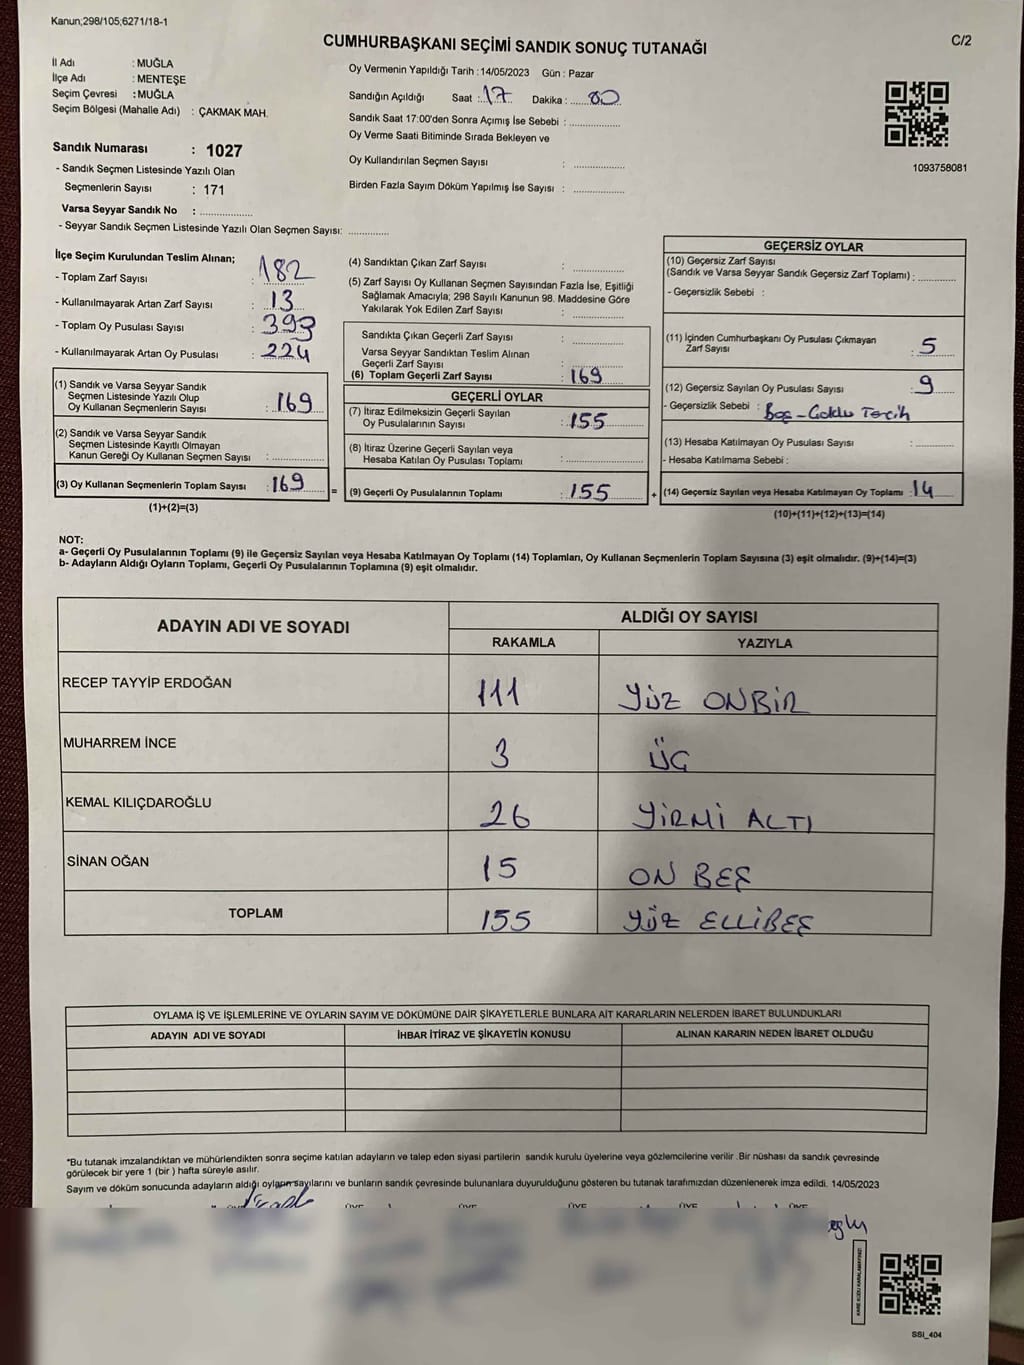 Kanun;298/105;6271/18-1
CUMHURBAŞKANI SEÇİMİ SANDIK SONUÇ TUTANAĞI
C/2
İl Adı : MUĞLA
İlçe Adı : MENTEŞE
Seçim Çevresi : MUĞLA
Seçim Bölgesi (Mahalle Adı) : ÇAKMAK MAH.
Sandık Numarası : 1027
- Sandık Seçmen Listesinde Yazılı Olan
Seçmenlerin Sayısı : 171
Varsa Seyyar Sandık No : ................
- Seyyar Sandık Seçmen Listesinde Yazılı Olan Seçmen Sayısı: ............
Oy Vermenin Yapıldığı Tarih : 14/05/2023 Gün : Pazar
Sandığın Açıldığı Saat : 17 Dakika : 00
Sandık Saat 17:00'den Sonra Açımış İse Sebebi : ...............
Oy Verme Saati Bitiminde Sırada Bekleyen ve
Oy Kullandırılan Seçmen Sayısı : ...............
Birden Fazla Sayım Döküm Yapılmış İse Sayısı : ...............
1093758081
İlçe Seçim Kurulundan Teslim Alınan;
- Toplam Zarf Sayısı : 182
- Kullanılmayarak Artan Zarf Sayısı : 13
- Toplam Oy Pusulası Sayısı : 393
- Kullanılmayarak Artan Oy Pusulası : 224
(1) Sandık ve Varsa Seyyar Sandık
Seçmen Listesinde Yazılı Olup
Oy Kullanan Seçmenlerin Sayısı : 169
(2) Sandık ve Varsa Seyyar Sandık
Seçmen Listesinde Kayıtlı Olmayan
Kanun Gereği Oy Kullanan Seçmen Sayısı : ...............
(3) Oy Kullanan Seçmenlerin Toplam Sayısı : 169
(1)+(2)=(3)
=
(4) Sandıktan Çıkan Zarf Sayısı : ...............
(5) Zarf Sayısı Oy Kullanan Seçmen Sayısından Fazla İse, Eşitliği
Sağlamak Amacıyla; 298 Sayılı Kanunun 98. Maddesine Göre
Yakılarak Yok Edilen Zarf Sayısı : ...............
Sandıkta Çıkan Geçerli Zarf Sayısı : ...............
Varsa Seyyar Sandıktan Teslim Alınan
Geçerli Zarf Sayısı : ...............
(6) Toplam Geçerli Zarf Sayısı : 169
GEÇERLİ OYLAR
(7) İtiraz Edilmeksizin Geçerli Sayılan
Oy Pusulalarının Sayısı : 155
(8) İtiraz Üzerine Geçerli Sayılan veya
Hesaba Katılan Oy Pusulası Toplamı : ...............
(9) Geçerli Oy Pusulalarının Toplamı : 155
+
GEÇERSİZ OYLAR
(10) Geçersiz Zarf Sayısı
(Sandık ve Varsa Seyyar Sandık Geçersiz Zarf Toplamı) : ............
- Geçersizlik Sebebi :
(11) İçinden Cumhurbaşkanı Oy Pusulası Çıkmayan
Zarf Sayısı : 5
(12) Geçersiz Sayılan Oy Pusulası Sayısı : 9
- Geçersizlik Sebebi : Boş - Çoklu Tercih
(13) Hesaba Katılmayan Oy Pusulası Sayısı : ............
- Hesaba Katılmama Sebebi :
(14) Geçersiz Sayılan veya Hesaba Katılmayan Oy Toplamı : 14
(10)+(11)+(12)+(13)=(14)
NOT:
a- Geçerli Oy Pusulalarının Toplamı (9) ile Geçersiz Sayılan veya Hesaba Katılmayan Oy Toplamı (14) Toplamları, Oy Kullanan Seçmenlerin Toplam Sayısına (3) eşit olmalıdır. (9)+(14)=(3)
b- Adayların Aldığı Oyların Toplamı, Geçerli Oy Pusulalarının Toplamına (9) eşit olmalıdır.
ADAYIN ADI VE SOYADI
ALDIĞI OY SAYISI
RAKAMLA YAZIYLA
RECEP TAYYİP ERDOĞAN 111 YÜZ ONBİR
MUHARREM İNCE 3 ÜÇ
KEMAL KILIÇDAROĞLU 26 YİRMİ ALTI
SİNAN OĞAN 15 ON BEŞ
TOPLAM 155 YÜZ ELLİBEŞ
OYLAMA İŞ VE İŞLEMLERİNE VE OYLARIN SAYIM VE DÖKÜMÜNE DAİR ŞİKAYETLERLE BUNLARA AİT KARARLARIN NELERDEN İBARET BULUNDUKLARI
ADAYIN ADI VE SOYADI İHBAR İTİRAZ VE ŞİKAYETİN KONUSU ALINAN KARARIN NEDEN İBARET OLDUĞU
*Bu tutanak imzalandıktan ve mühürlendikten sonra seçime katılan adayların ve talep eden siyasi partilerin sandık kurulu üyelerine veya gözlemcilerine verilir .Bir nüshası da sandık çevresinde
görülecek bir yere 1 (bir ) hafta süreyle asılır.
Sayım ve döküm sonucunda adayların aldığı oyların sayılarını ve bunların sandık çevresinde bulunanlara duyurulduğunu gösteren bu tutanak tarafımızdan düzenlenerek imza edildi. 14/05/2023
ÜYE ÜYE ÜYE ÜYE ÜYE
SSI_404